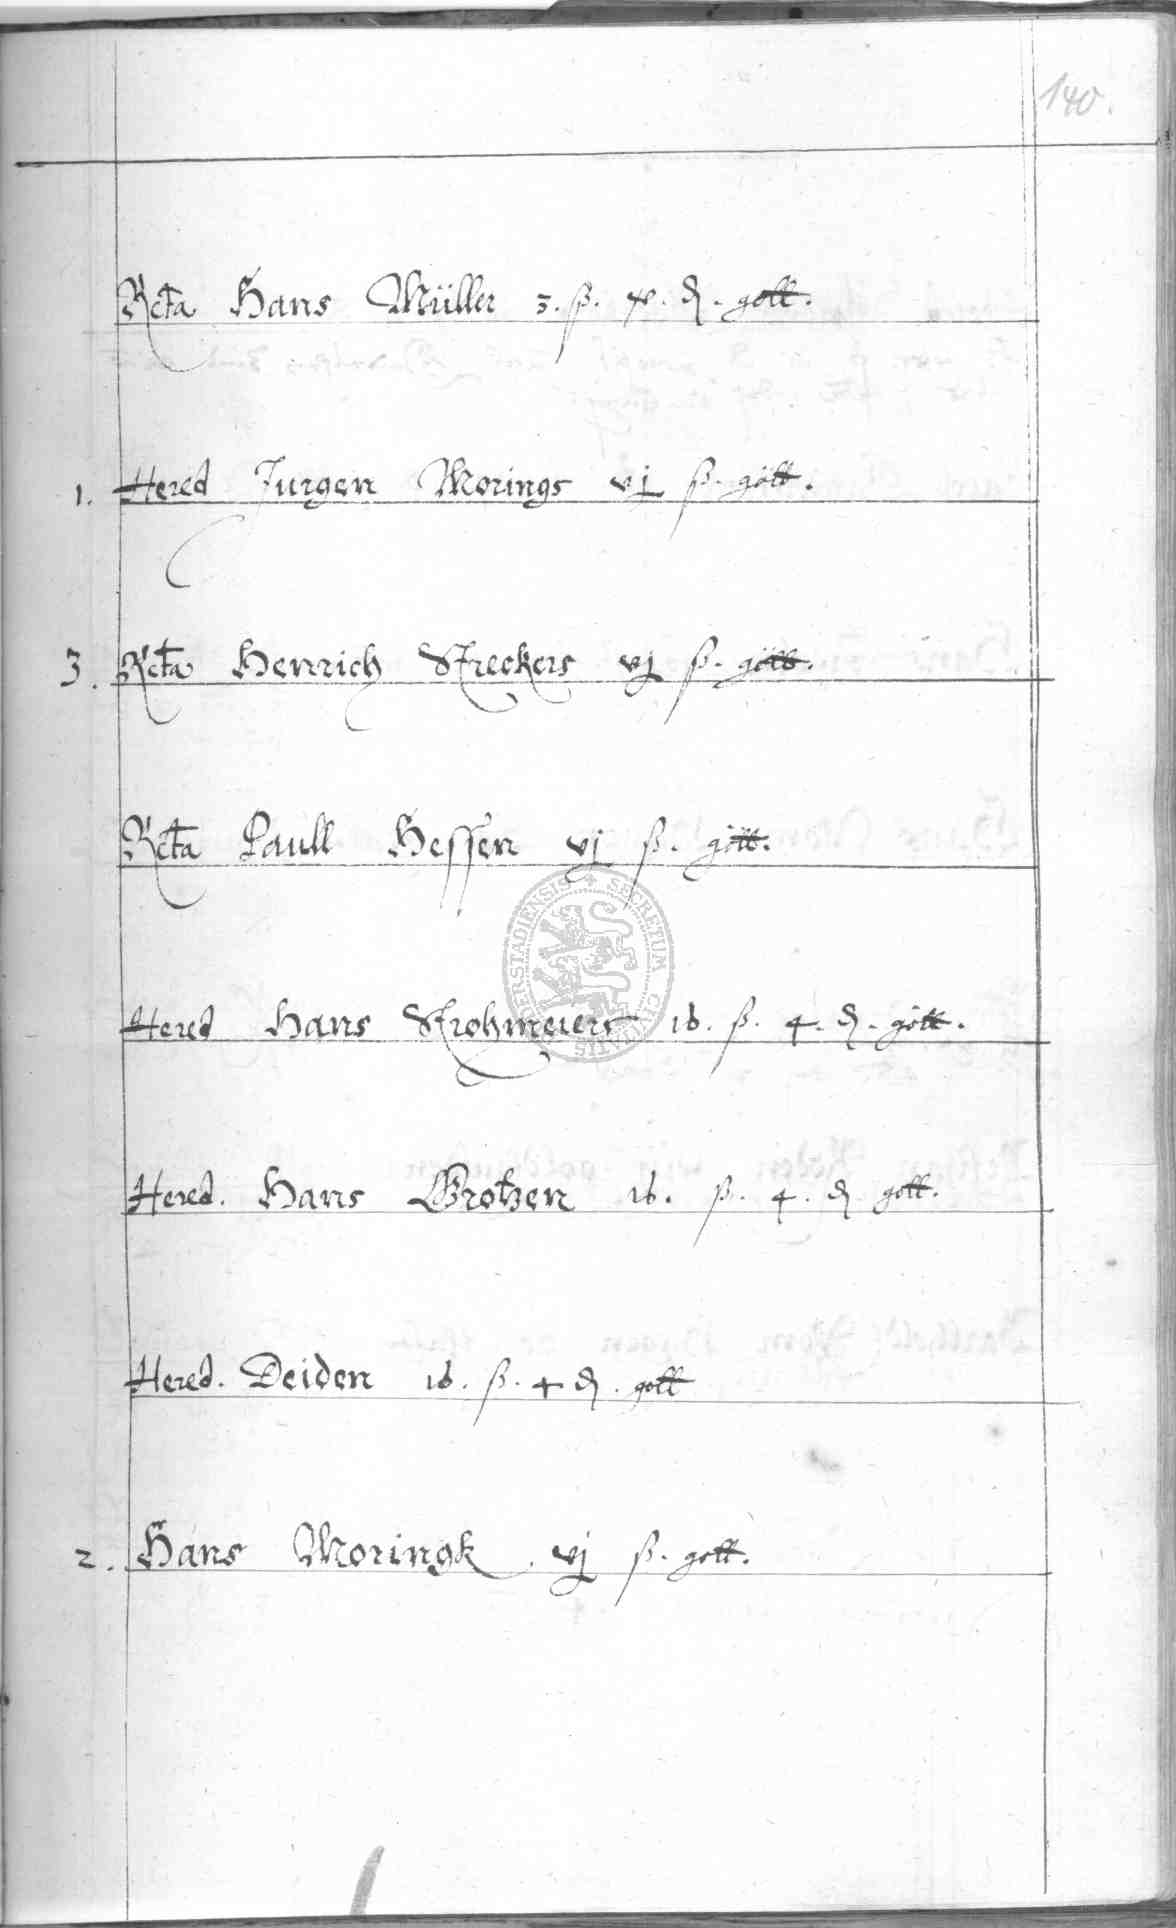 140.
Rcta Hans Müller 3. ß. 4. ₰. gott.
1. Hered Jurgen Morings vj ß. gott.
3. Rcta Henrich Streckers vj ß. gott.
Rcta Paull Hessen vj ß. gott.
ERSTADIENSIS + SECRETUM CIVITATIS
Hered Hans Strohmeiers 16. ß. 4. ₰. gott.
Hered. Hans Grotzen 16. ß. 4. ₰ gott.
Hered. Deiden 16. ß. 4 ₰. gott
2. Hans Moringk. vj ß. gott.